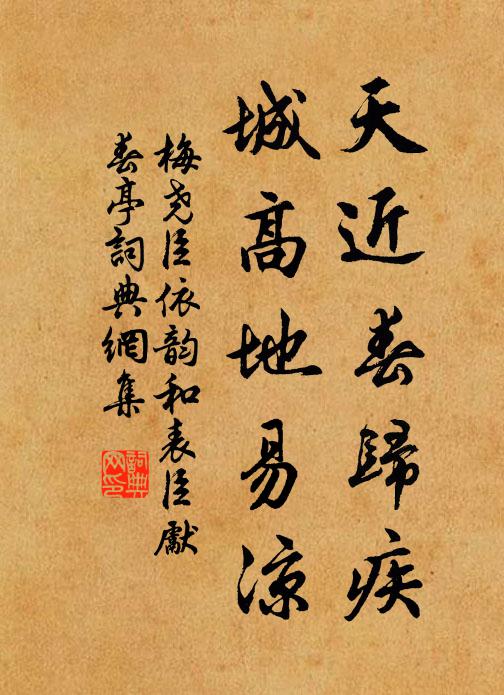 天近春歸疾
城高地易涼
梅堯臣依韵和表臣獻
春亭詞典網集
詞典网印